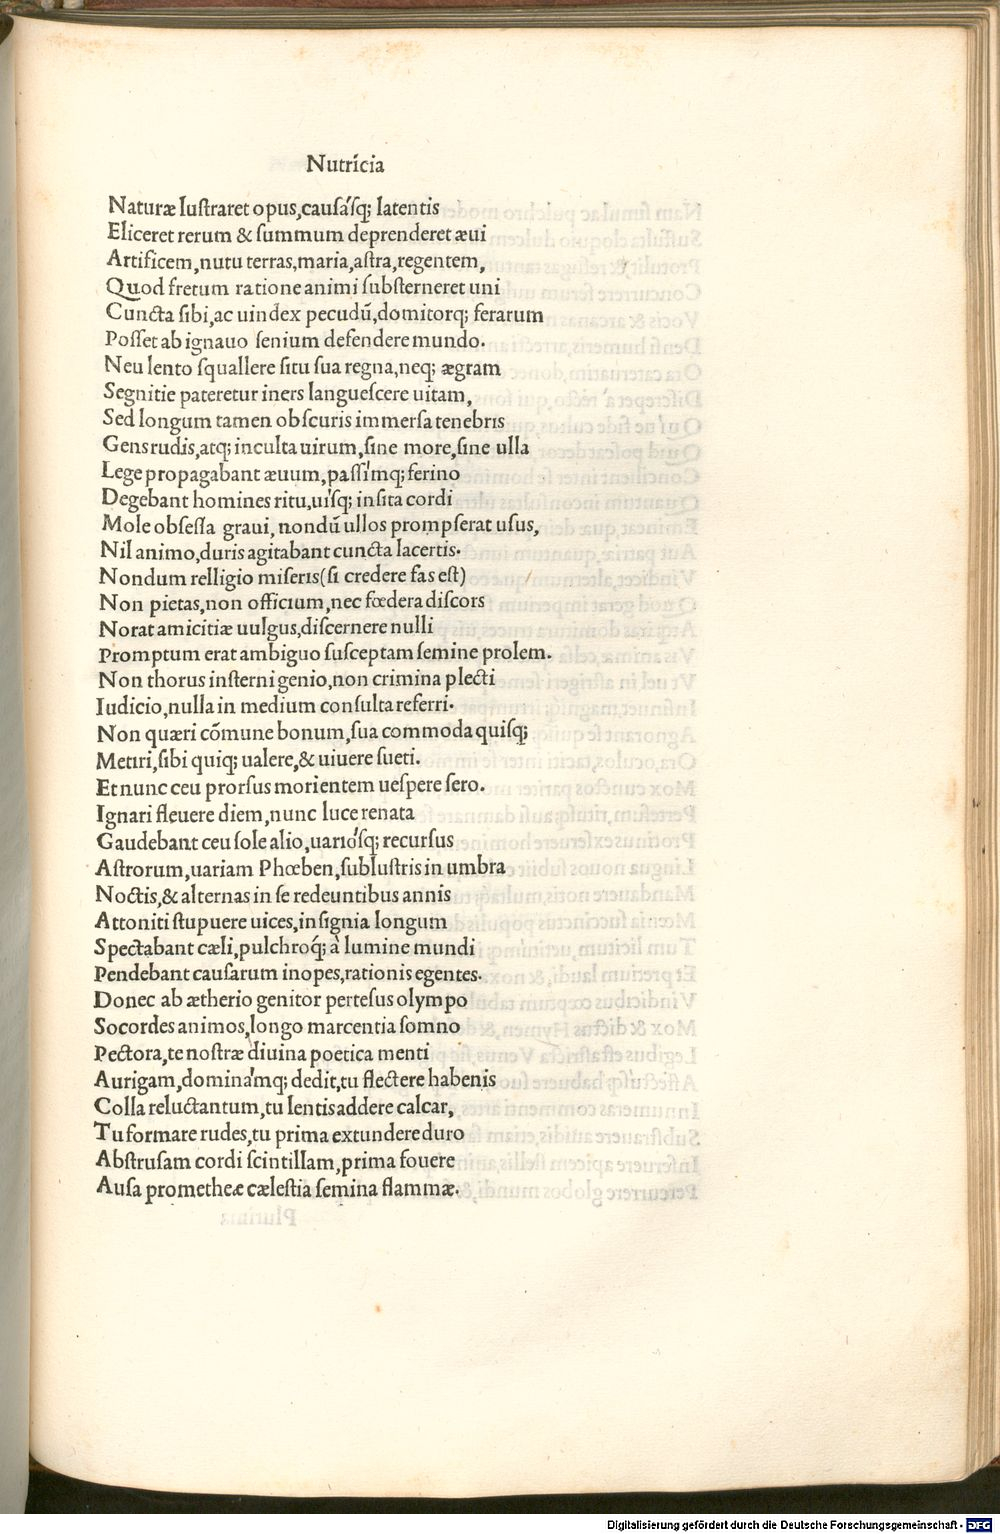 Nutrícia
Naturæ luſtraret opus,cauſáſq; latentis
Eliceret rerum & ſummum deprenderet æui
Artificem,nutu terras,maria,aſtra,regentem,
Quod fretum ratione animi ſubſterneret uni
Cuncta ſibi,ac uindex pecudū,domitorq; ferarum
Poſſet ab ignauo ſenium defendere mundo.
Neu lento ſquallere ſitu ſua regna,neq; ægram
Segnitie pateretur iners langueſcere uitam,
Sed longum tamen obſcuris immerſa tenebris
Gens rudis,atq; inculta uirum,ſine more,ſine ulla
Lege propagabant æuum,paſſímq; ferino
Degebant homines ritu,uíſq; inſita cordi
Mole obſeſſa graui, nondū ullos prompſerat uſus,
Nil animo,duris agitabant cuncta lacertis.
Nondum relligio miſeris(ſi credere fas eſt)
Non pietas,non officium,nec fœdera diſcors
Norat amicitiæ uulgus,diſcernere nulli
Promptum erat ambiguo ſuſceptam ſemine prolem.
Non thorus inſterni genio,non crimina plecti
Iudicio,nulla in medium conſulta referri.
Non quæri cōmune bonum,ſua commoda quiſq;
Metiri,ſibi quiq; ualere,& uiuere ſueti.
Et nunc ceu prorſus morientem ueſpere ſero.
Ignari fleuere diem,nunc luce renata
Gaudebant ceu ſole alio,uarióſq; recurſus
Aſtrorum,uariam Phœben,ſubluſtris in umbra
Noctis,& alternas in ſe redeuntibus annis
Attoniti ſtupuere uices,inſignia longum
Spectabant cæli,pulchroq́; à lumine mundi
Pendebant cauſarum inopes,rationis egentes.
Donec ab ætherio genitor perteſus olympo
Socordes animos,longo marcentia ſomno
Pectora,te noſtræ diuina poetica menti
Aurigam,dominámq; dedit,tu flectere habenis
Colla reluctantum,tu lentis addere calcar,
Tu formare rudes,tu prima extundere duro
Abſtruſam cordi ſcintillam,prima fouere
Auſa prometheæ cæleſtia ſemina flammæ.
Digitalisierung gefördert durch die Deutsche Forschungsgemeinschaft - DFG